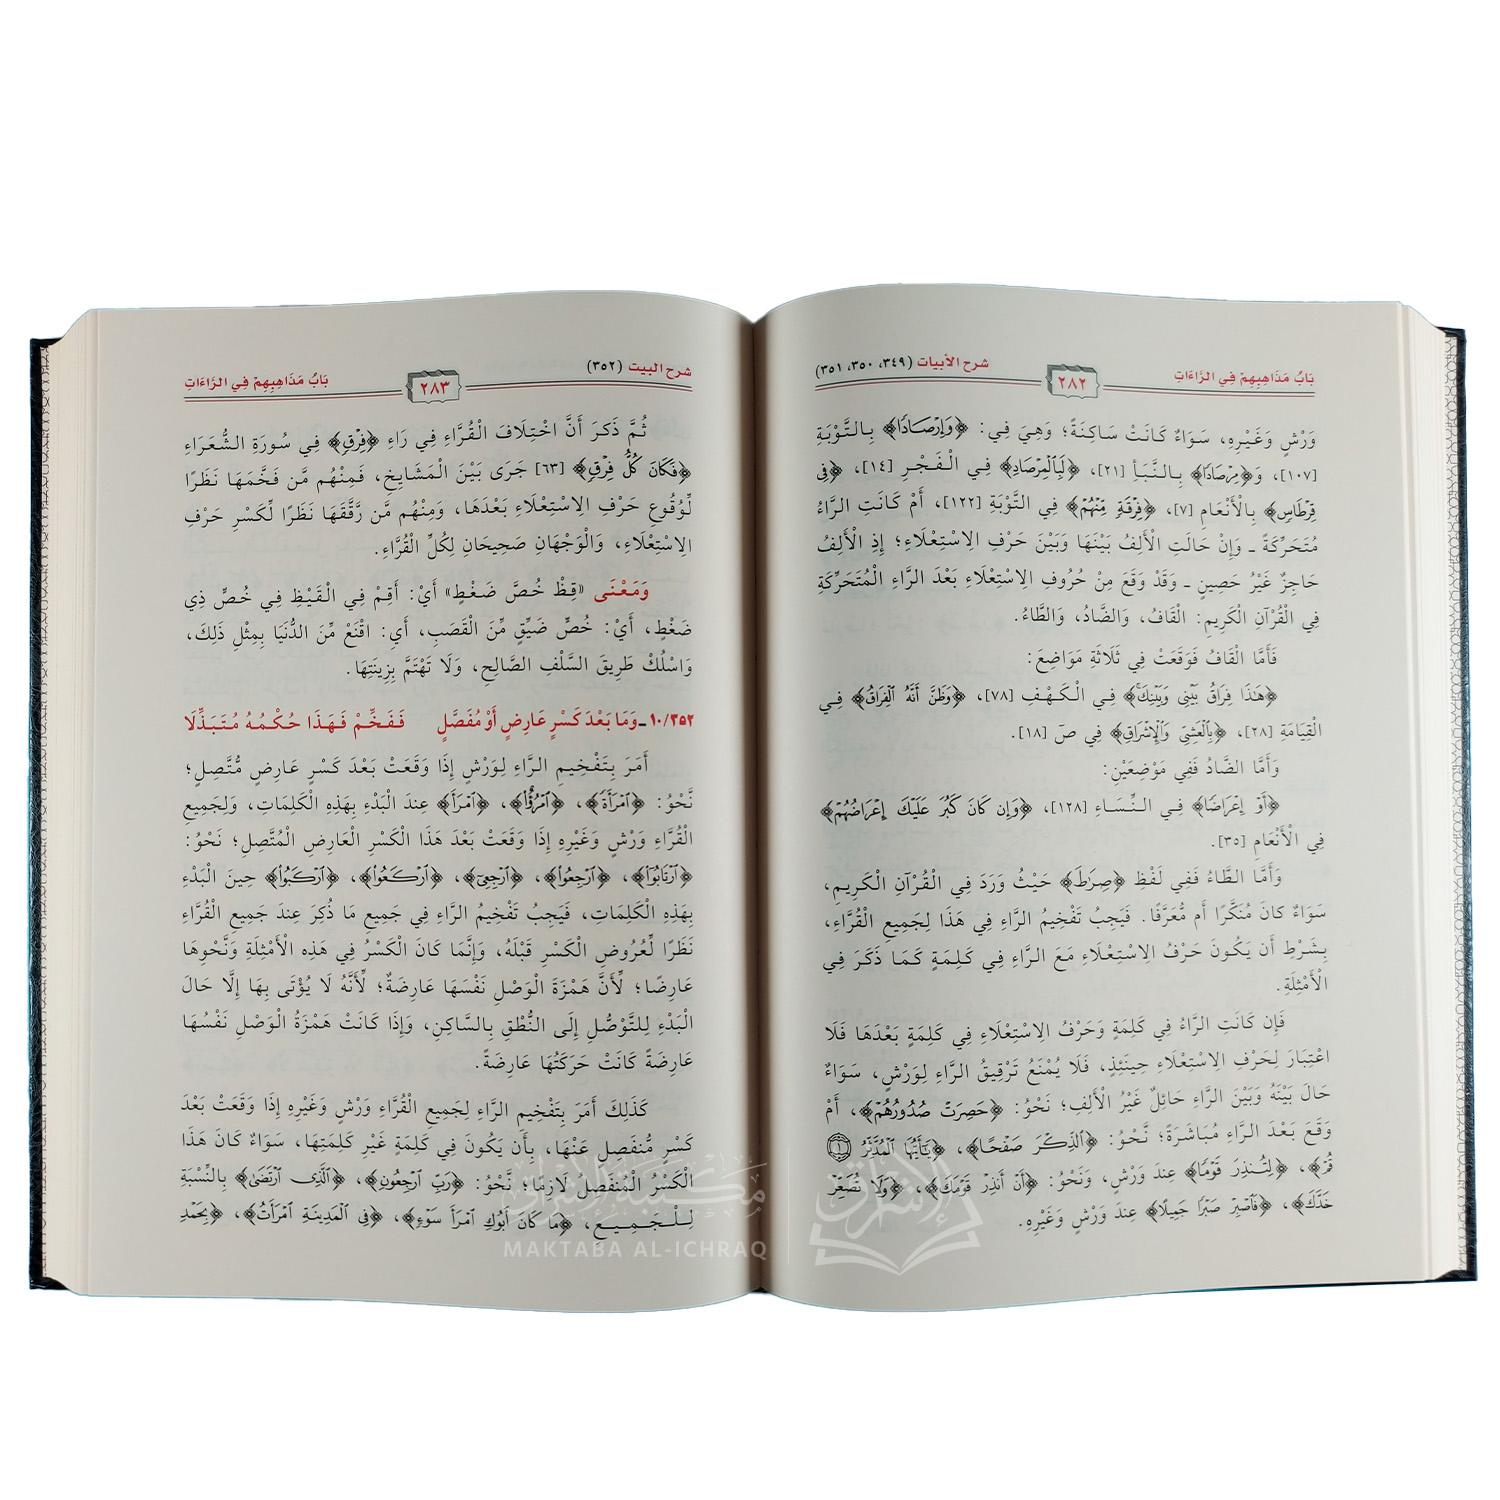 بَابُ مَذَاهِبِهِمْ فِي الرَّاءَاتِ
٢٨٢
شرح الأبيات (٣٤٩، ٣٥٠، ٣٥١)
وَرْشٍ وَغَيْرِهِ، سَوَاءٌ كَانَتْ سَاكِنَةً؛ وَهِيَ فِي: ﴿وَإِرۡصَادٗا﴾ بِالتَّوْبَةِ
[١٠٧]، وَ﴿مِرۡصَادٗا﴾ بِالنَّبَأ [٢١]، ﴿لَبِٱلۡمِرۡصَادِ﴾ فِي الْفَجْرِ [١٤]، ﴿فِي
قِرۡطَاسٖ﴾ بِالْأَنْعَامِ [٧]، ﴿فِرۡقَةٖ مِّنۡهُمۡ﴾ فِي التَّوْبَةِ [١٢٢]، أَمْ كَانَتِ الرَّاءُ
مُتَحَرِّكَةً ـ وَإِنْ حَالَتِ الْأَلِفُ بَيْنَهَا وَبَيْنَ حَرْفِ الِاسْتِعْلَاءِ؛ إِذِ الْأَلِفُ
حَاجِزٌ غَيْرُ حَصِينٍ ـ وَقَدْ وَقَعَ مِنْ حُرُوفِ الِاسْتِعْلَاءِ بَعْدَ الرَّاءِ الْمُتَحَرِّكَةِ
فِي الْقُرْآنِ الْكَرِيمِ: الْقَافُ، وَالضَّادُ، وَالطَّاءُ.
فَأَمَّا الْقَافُ فَوَقَعَتْ فِي ثَلَاثَةِ مَوَاضِعَ:
﴿هَٰذَا فِرَاقُ بَيۡنِي وَبَيۡنِكَۚ﴾ فِي الْكَهْفِ [٧٨]، ﴿وَظَنَّ أَنَّهُ ٱلۡفِرَاقُ﴾ فِي
الْقِيَامَةِ [٢٨]، ﴿بِٱلۡعَشِيِّ وَٱلۡإِشۡرَاقِ﴾ فِي صَ [١٨].
وَأَمَّا الضَّادُ فَفِي مَوْضِعَيْنِ:
﴿أَوۡ إِعۡرَاضٗا﴾ فِي النِّسَاءِ [١٢٨]، ﴿وَإِن كَانَ كَبُرَ عَلَيۡكَ إِعۡرَاضُهُمۡ﴾
فِي الْأَنْعَامِ [٣٥].
وَأَمَّا الطَّاءُ فَفِي لَفْظِ ﴿صِرَٰطَ﴾ حَيْثُ وَرَدَ فِي الْقُرْآنِ الْكَرِيمِ،
سَوَاءٌ كَانَ مُنَكَّرًا أَم مُّعَرَّفًا. فَيَجِبُ تَفْخِيمُ الرَّاءِ فِي هَذَا لِجَمِيعِ الْقُرَّاءِ،
بِشَرْطِ أَن يَكُونَ حَرْفُ الِاسْتِعْلَاءِ مَعَ الرَّاءِ فِي كَلِمَةٍ كَمَا ذَكَرَ فِي
الْأَمْثِلَةِ.
فَإِن كَانَتِ الرَّاءُ فِي كَلِمَةٍ وَحَرْفُ الِاسْتِعْلَاءِ فِي كَلِمَةٍ بَعْدَهَا فَلَا
اعْتِبَارَ لِحَرْفِ الِاسْتِعْلَاءِ حِينَئِذٍ، فَلَا يُمْنَعُ تَرْقِيقُ الرَّاءِ لِوَرْشٍ، سَوَاءٌ
حَالَ بَيْنَهُ وَبَيْنَ الرَّاءِ حَائِلٌ غَيْرُ الْأَلِفِ؛ نَحْوُ: ﴿حَصِرَتۡ صُدُورُهُمۡ﴾، أَمْ
وَقَعَ بَعْدَ الرَّاءِ مُبَاشَرَةً؛ نَحْوُ: ﴿ٱلذِّكۡرَ صَفۡحًا﴾، ﴿يَٰٓأَيُّهَا ٱلۡمُدَّثِّرُ ۝١
قُمۡ﴾، ﴿لِتُنذِرَ قَوۡمٗا﴾ عِندَ وَرْشٍ، وَنَحْوُ: ﴿أَنۡ أَنذِرۡ قَوۡمَكَ﴾، ﴿وَلَا تُصَعِّرۡ
خَدَّكَ﴾، ﴿فَٱصۡبِرۡ صَبۡرٗا جَمِيلًا﴾ عِندَ وَرْشٍ وَغَيْرِهِ.
شرح البيت (٣٥٢)
٢٨٣
بَابُ مَذَاهِبِهِمْ فِي الرَّاءَاتِ
ثُمَّ ذَكَرَ أَنَّ اخْتِلَافَ الْقُرَّاءِ فِي رَاءِ ﴿فِرۡقٖ﴾ فِي سُورَةِ الشُّعَرَاءِ
﴿فَكَانَ كُلُّ فِرۡقٖ﴾ [٦٣] جَرَى بَيْنَ الْمَشَايِخِ، فَمِنْهُم مَّن فَخَّمَهَا نَظَرًا
لِّوُقُوعِ حَرْفِ الِاسْتِعْلَاءِ بَعْدَهَا، وَمِنْهُم مَّن رَّقَّقَهَا نَظَرًا لِّكَسْرِ حَرْفِ
الِاسْتِعْلَاءِ، وَالْوَجْهَانِ صَحِيحَانِ لِكُلِّ الْقُرَّاءِ.
وَمَعْنَى «قِظْ خُصَّ ضَغْطٍ» أَيْ: أَقِمْ فِي الْقَيْظِ فِي خُصٍّ ذِي
ضَغْطٍ، أَيْ: خُصٍّ ضَيِّقٍ مِّنَ الْقَصَبِ، أَيِ: اقْنَعْ مِنَ الدُّنْيَا بِمِثْلِ ذَلِكَ،
وَاسْلُكْ طَرِيقَ السَّلَفِ الصَّالِحِ، وَلَا تَهْتَمَّ بِزِينَتِهَا.
١٠/٣٥٢ ـ وَمَا بَعْدَ كَسْرٍ عَارِضٍ أَوْ مُفَصَّلٍ فَفَخِّمْ فَهَذَا حُكْمُهُ مُتَبَذِّلَا
أَمَرَ بِتَفْخِيمِ الرَّاءِ لِوَرْشٍ إِذَا وَقَعَتْ بَعْدَ كَسْرٍ عَارِضٍ مُّتَّصِلٍ؛
نَّحْوُ: ﴿ٱمۡرَأَةٗ﴾، ﴿ٱمۡرُؤٌاْ﴾، ﴿ٱمۡرَأَ﴾ عِندَ الْبَدْءِ بِهَذِهِ الْكَلِمَاتِ، وَلِجَمِيعِ
الْقُرَّاءِ وَرْشٍ وَغَيْرِهِ إِذَا وَقَعَتْ بَعْدَ هَذَا الْكَسْرِ الْعَارِضِ الْمُتَّصِلِ؛ نَحْوُ:
﴿ٱرۡتَابُوٓاْ﴾، ﴿ٱرۡجِعُوٓاْ﴾، ﴿ٱرۡجِعِيٓ﴾، ﴿ٱرۡكَعُواْ﴾، ﴿ٱرۡكَبُواْ﴾ حِينَ الْبَدْءِ
بِهَذِهِ الْكَلِمَاتِ، فَيَجِبُ تَفْخِيمُ الرَّاءِ فِي جَمِيعِ مَا ذُكِرَ عِندَ جَمِيعِ الْقُرَّاءِ
نَظَرًا لِّعُرُوضِ الْكَسْرِ قَبْلَهُ، وَإِنَّمَا كَانَ الْكَسْرُ فِي هَذِهِ الْأَمْثِلَةِ وَنَّحْوِهَا
عَارِضًا؛ لِّأَنَّ هَمْزَةَ الْوَصْلِ نَفْسَهَا عَارِضَةٌ؛ لِّأَنَّهُ لَا يُؤْتَى بِهَا إِلَّا حَالَ
الْبَدْءِ لِلتَّوَصُّلِ إِلَى النُّطْقِ بِالسَّاكِنِ، وَإِذَا كَانَتْ هَمْزَةُ الْوَصْلِ نَفْسُهَا
عَارِضَةً كَانَتْ حَرَكَتُهَا عَارِضَةً.
كَذَلِكَ أَمَرَ بِتَفْخِيمِ الرَّاءِ لِجَمِيعِ الْقُرَّاءِ وَرْشٍ وَغَيْرِهِ إِذَا وَقَعَتْ بَعْدَ
كَسْرٍ مُّنفَصِلٍ عَنْهَا، بِأَن يَكُونَ فِي كَلِمَةٍ غَيْرِ كَلِمَتِهَا، سَوَاءٌ كَانَ هَذَا
الْكَسْرُ الْمُنفَصِلُ لَازِمًا؛ نَّحْوُ: ﴿رَبِّ ٱرۡجِعُونِ﴾، ﴿ٱلَّذِي ٱرۡتَضَىٰ﴾ بِالنِّسْبَةِ
لِلْجَمِيعِ، ﴿مَا كَانَ أَبُوكِ ٱمۡرَأَ سَوۡءٖ﴾، ﴿فِي ٱلۡمَدِينَةِ ٱمۡرَأَتُ﴾، ﴿بِحَمۡدِ
مكتبة الإشراق
MAKTABA AL-ICHRAQ
الإشراق